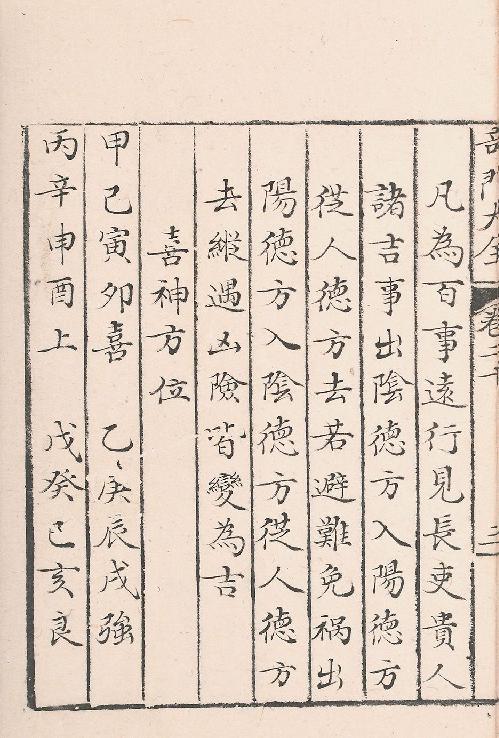 奇門大全 卷二十 三
凡為百事遠行見長吏貴人
諸吉事出陰德方入陽德方
從人德方去若避難免禍出
陽德方入陰德方從人德方
去縱遇凶險皆變為吉
喜神方位
甲己寅卯喜 乙庚辰戌強
丙辛申酉上 戊癸巳亥良